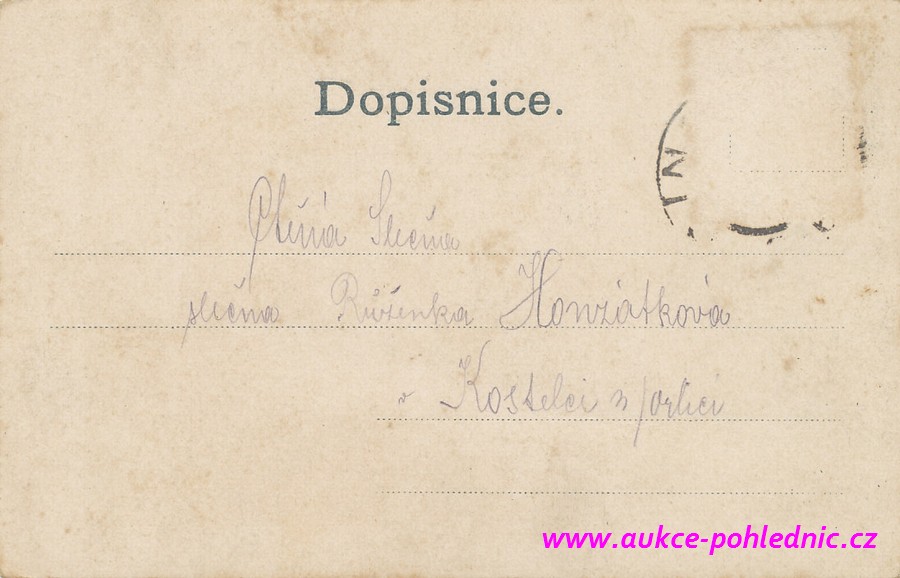 Dopisnice.
Ctěná Slečna
slečna Růženka Honzátková
v Kostelci n/orlicí
www.aukce-pohlednic.cz